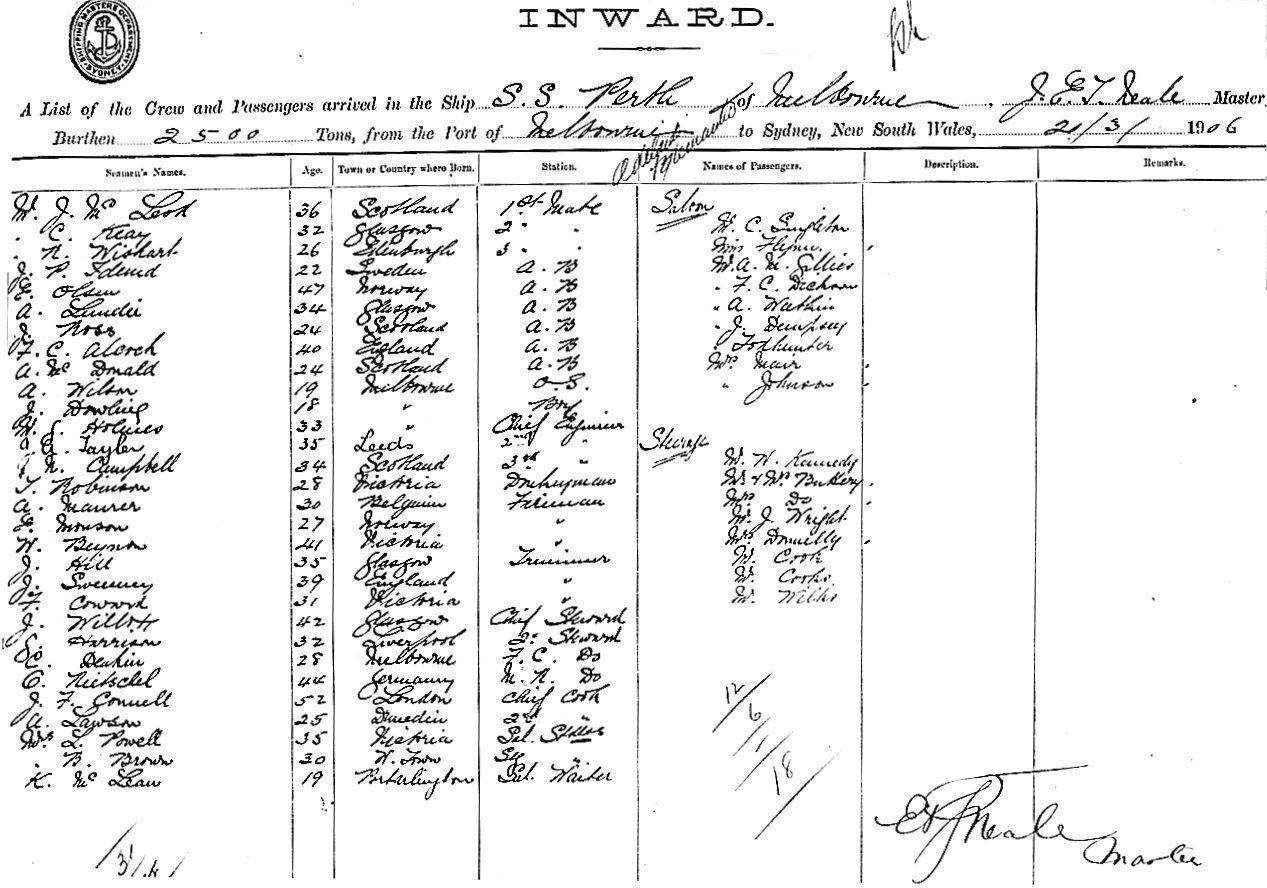 SHIPPING MASTERS DEPARTMENT SYDNEY
INWARD.
A List of the Crew and Passengers arrived in the Ship S.S. Perth of Melbourne, J. E. T. Neale Master,
Burthen 2500 Tons, from the Port of Melbourne to Sydney, New South Wales, 21/3/ 1906
Seamen's Names. Age. Town or Country where Born. Station. Names of Passengers. Description. Remarks.
W. J. Mc Leod 36 Scotland 1st Mate Saloon
" C. Keay 32 Glasgow 2 " " W. C. Singleton
" R. Wishart 26 Edinburgh 3 " " Miss Flynn
J. P. 22 Sweden A. B W. A. M. Gillies
E. Olsen 47 Norway A. B " F. C. Dickson
A. 34 Glasgow A. B " A. Watkins
J. Ross 24 Scotland A. B " J. Dempsey
F. C. Alcock 40 England A. B " Todhunter
A. Mc Donald 24 Scotland A. B Mrs Mair
A. Wilson 19 Melbourne O. S. " Johnson
J. Dowling 18 " Boy
W. J. Holmes 33 " Chief Engineer
J. A. Tayler 35 Leeds 2nd " Steerage
J. N. Campbell 34 Scotland 3rd " W. W. Kennedy
T. Robinson 28 Victoria Donkeyman Mr & Mrs
A. Maurer 30 Belguim Fireman Mrs Do
E. Monson 27 Norway " Mr. J. Wright
W. Beynon 41 Victoria " Mrs Donnelly
J. Hill 35 Glasgow Trimmer W. Cook
J. Sweeney 39 England " W. Cooks
F. Coward 31 Victoria " W. Wilks
J. Willott 42 Glasgow Chief Steward
G. Harrison 32 Liverpool 2nd Steward
C. Deakin 28 Melbourne F. C. Do
O. Rietschel 44 Germany M. R. Do
J. F. Connell 52 London Chief Cook
A. Lawson 25 Dunedin 2nd "
Mrs L. Powell 35 Victoria Sal. Stdss
" B. Brown 30 W. Town
K. Mc Lean 19 Portarlington Sal. Waiter
12/6/1/18
E T Neale
Master
31